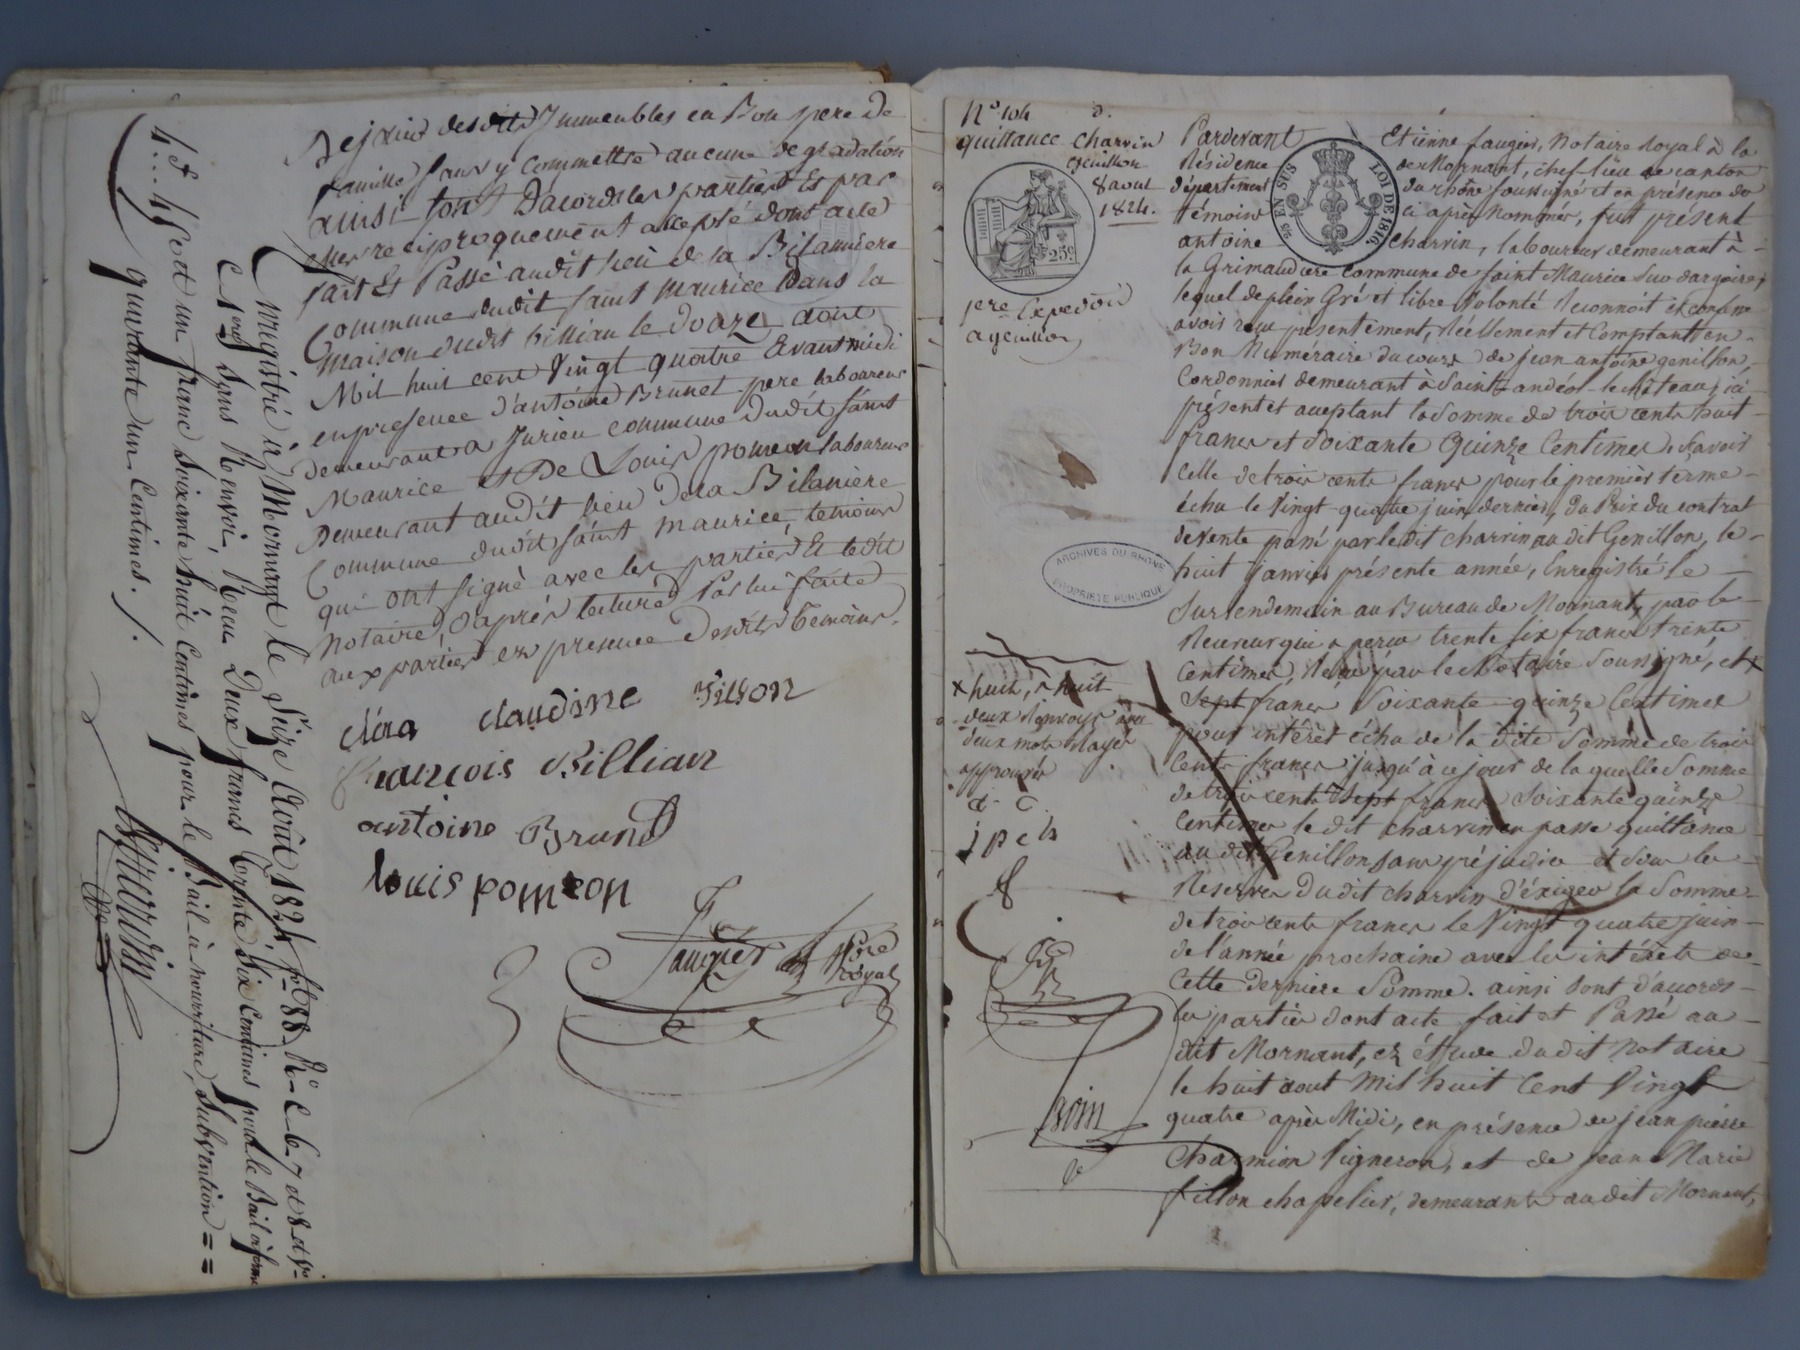 desdits Immeubles en Bon pere de
famille sans y commettre aucune degradation
ainsi sont D'acord les parties Et par
elles reciproquement accepté dont acte
fait Et Passé audit lieu de la Bilanière
Commune dudit saint maurice Dans la
maison dudit billian le douze aout
Mil huit cent Vingt quatre avant midi
en presence d'antoine Brunet pere laboureur
demeurant a Jurieu commune dudit saint
Maurice et De Louis pomeon laboureur
Demeurant audit lieu de la Bilanière
Commune dudit saint maurice, temoins
qui ont signé avec les parties Et ledit
notaire, d'après lecture Par lui faite
aux parties en presence Desdits temoins.
cléra claudine villon
francois Billian
antoine Brunet
louis pomeon
Faugier Nre
royal
Enregistré à Mornant le Seize Août 1824 f° 88 R° C 6, 7 et 8 et V°
C 1ere sans Renvoi, Reçu Deux francs trente Six Centimes pour le Bail à ferme
Et un franc Soixante huit Centimes pour le Bail à nourriture, Subvention = =
quarante un Centimes ./.
N° 104
quittance Charvin
genillon
8 aout
1824.
EN SUS
LOI DE 1816.
25c
1ere Expedon
a genillon
ARCHIVES DU RHONE
PROPRIETE PUBLIQUE
Pardevant Etienne faugier, Notaire Royal à la
Résidence de Mornant, chef-lieu de canton
département du rhône soussigné et en présence des
témoins ci après Nommés, fut présent
antoine Charvin, laboureur demeurant à
la Grimaudiere Commune de Saint Maurice sur dargoire,
lequel de plein Gré et libre Volonté Reconnoit et confesse
avoir reçu presentement, Réellement et Comptant en
Bon Numéraire du cours de jean antoine genillon,
Cordonnier demeurant à Saint-andéol-le château, ici
présent et acceptant la Somme de trois cents huit
francs et Soixante Quinze Centimes, Savoir
Celle de trois cents francs pour le premier terme
échu le Vingt-quatre juin dernier, du Prix du contrat
de Vente passé par ledit charvin au dit Genillon, le
huit janvier présente année, Enregistré le
Surlendemain au Bureau de Mornant, par le
Receveur qui a perçu trente six francs trente
Centimes, Reçu par le Notaire Soussigné, et x
Sept francs Soixante-quinze Centimes
pour intérêt échu de la dite Somme de trois
Cents francs jusqu'à ce jour de la quelle Somme
de trois cents Sept francs Soixante quinze
Centimes le dit charvin en passe quittance
au dit Genillon sans préjudice et sous les
Réserves Du dit charvin d'éxiger la Somme
de trois cents francs le Vingt quatre juin
de l'année prochaine avec les intérêts de
Cette derniere Somme. ainsi sont d'accord
les parties dont acte fait et Passé au
dit Mornant, en étude du dit Notaire
le huit aout Mil huit Cent Vingt
quatre après Midi, en présence de jean pierre
Charmion Vigneron, et de jean Marie
fillon chapelier, demeurants au dit Mornant,
x huit, ^ huit
deux Renvois avec
deux mots Rayés
approuvés